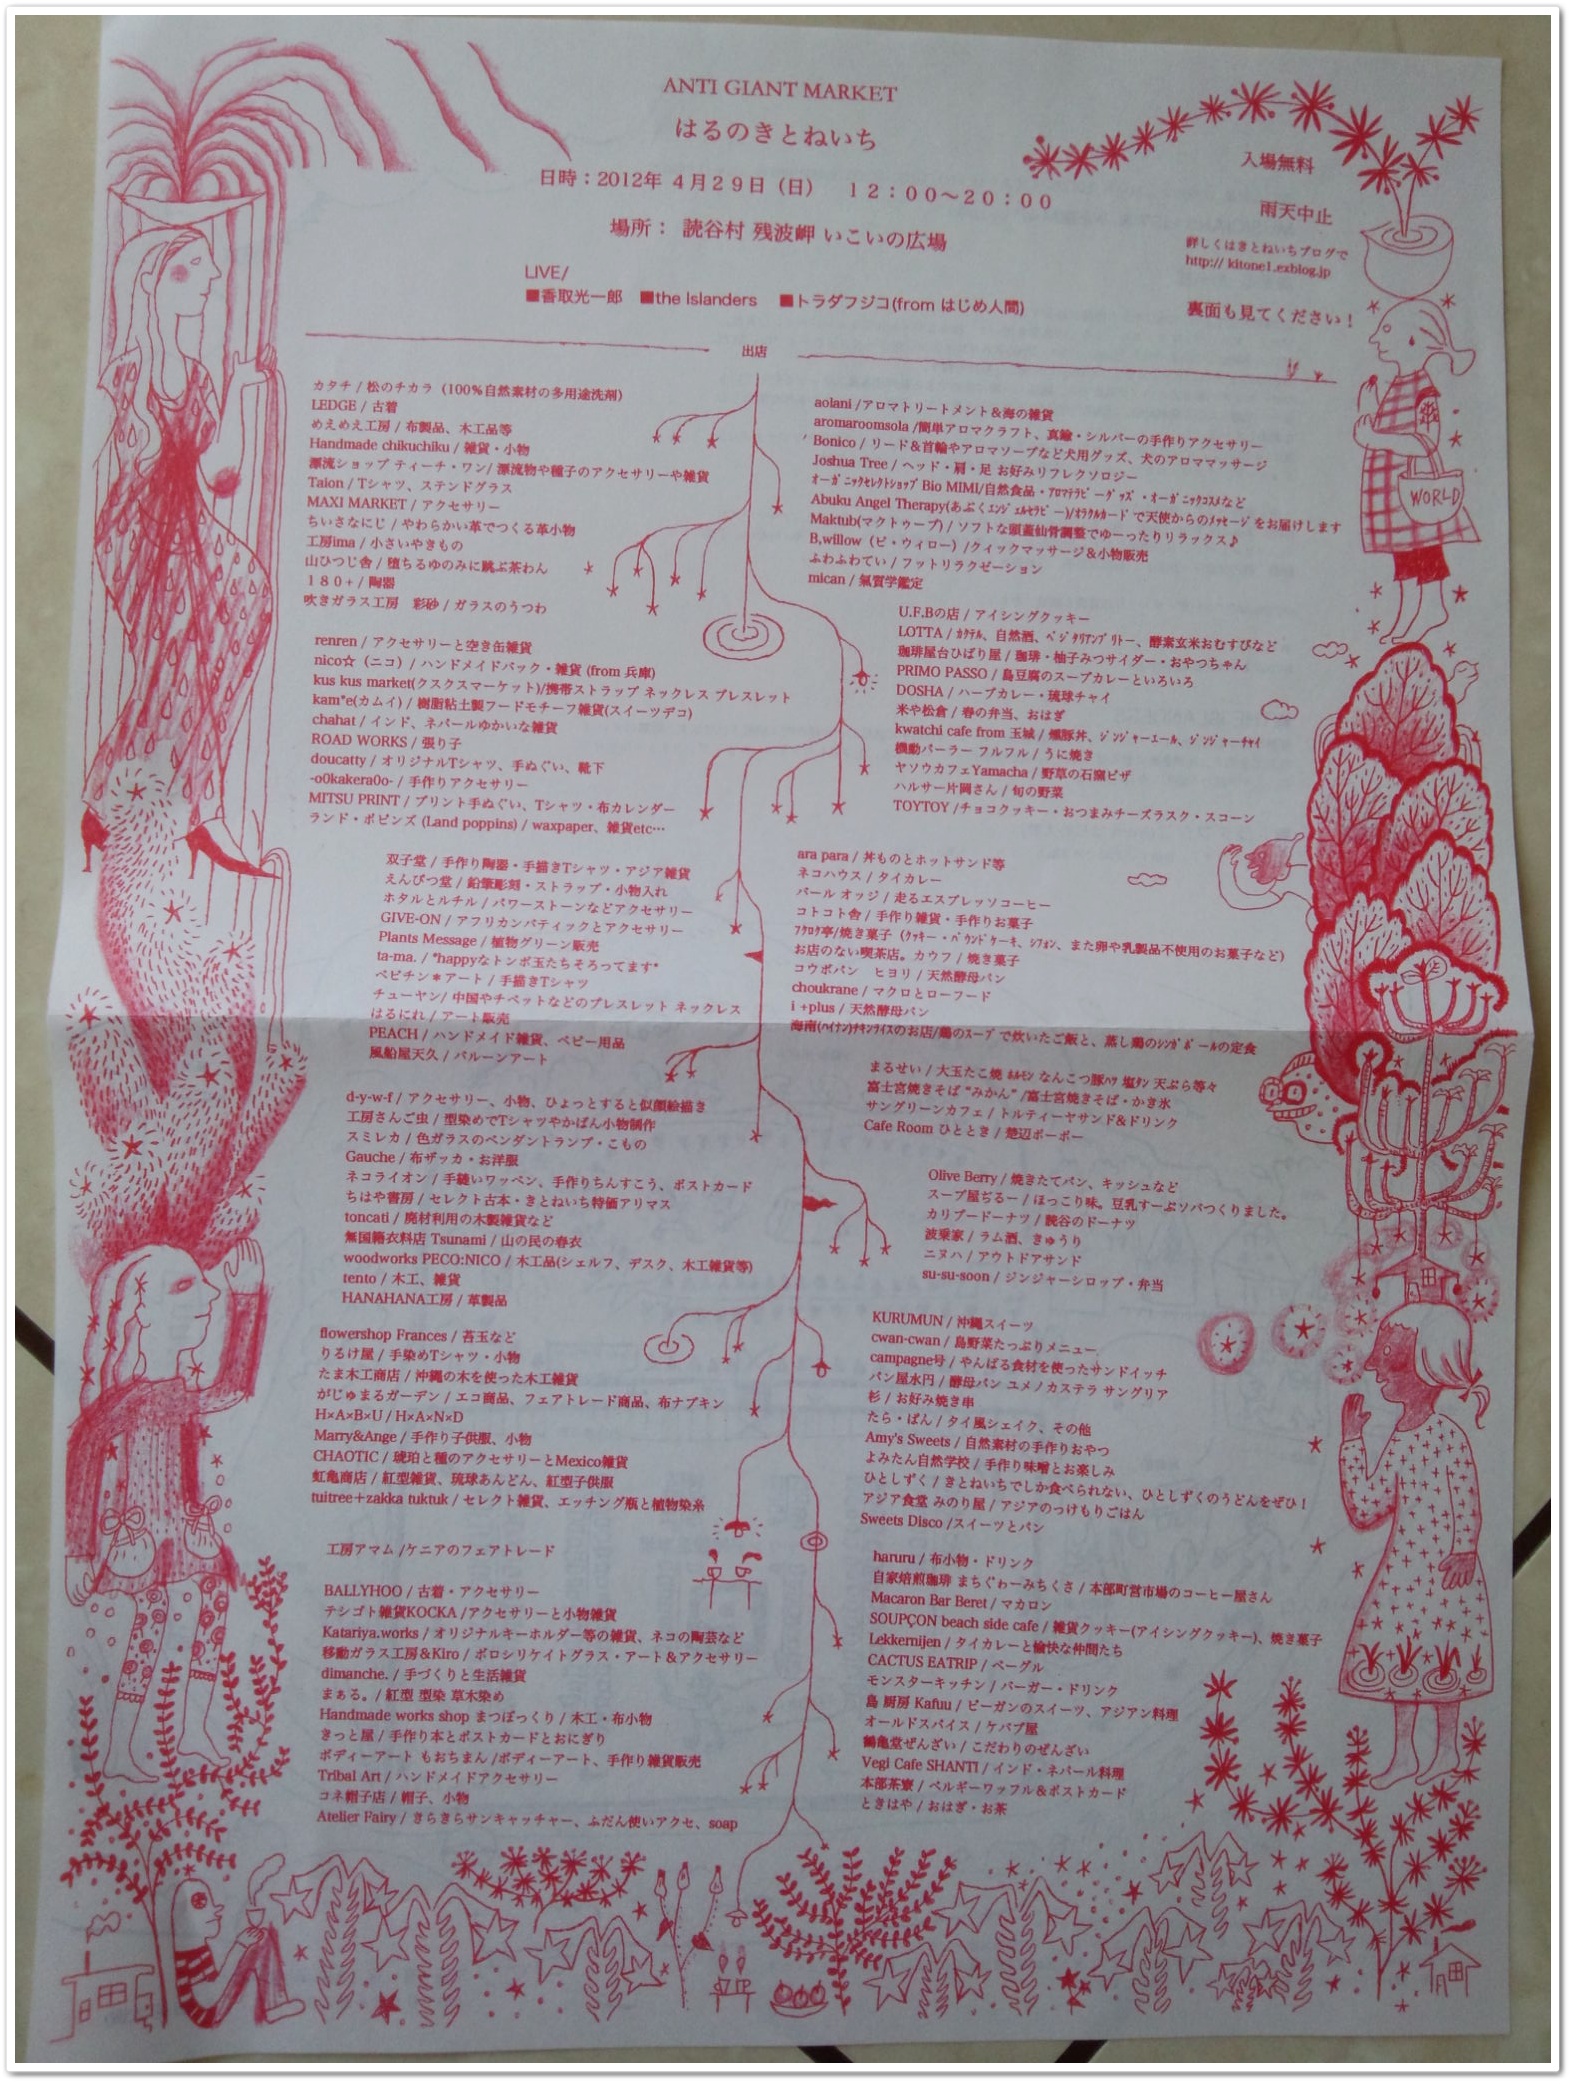 ANTI GIANT MARKET
はるのきとねいち
日時：2012年 4月29日（日）　12：00〜20：00
場所： 読谷村 残波岬 いこいの広場
LIVE/
■香取光一郎 ■the Islanders ■トラダフジコ(from はじめ人間)
入場無料
雨天中止
詳しくはきとねいちブログで
http:// kitone1.exblog.jp
裏面も見てください！
WORLD
出店
カタチ / 松のチカラ（100%自然素材の多用途洗剤）
LEDGE / 古着
めえめえ工房 / 布製品、木工品等
Handmade chikuchiku / 雑貨・小物
漂流ショップ ティーチ・ワン/ 漂流物や種子のアクセサリーや雑貨
Taion / Tシャツ、ステンドグラス
MAXI MARKET / アクセサリー
ちいさなにじ / やわらかい革でつくる革小物
工房ima / 小さいやきもの
山ひつじ舎 / 堕ちるゆのみに跳ぶ茶わん
１８０+ / 陶器
吹きガラス工房　彩砂 / ガラスのうつわ
renren / アクセサリーと空き缶雑貨
nico☆（ニコ）/ ハンドメイドバック・雑貨 (from 兵庫)
kus kus market(クスクスマーケット)/携帯ストラップ ネックレス ブレスレット
kam*e(カムイ) / 樹脂粘土製フードモチーフ雑貨(スイーツデコ)
chahat / インド、ネパールゆかいな雑貨
ROAD WORKS / 張り子
doucatty / オリジナルTシャツ、手ぬぐい、靴下
-o0kakera0o- / 手作りアクセサリー
MITSU PRINT / プリント手ぬぐい、Tシャツ・布カレンダー
ランド・ポピンズ (Land poppins) / waxpaper、雑貨etc…
双子堂 / 手作り陶器・手描きTシャツ・アジア雑貨
えんぴつ堂 / 鉛筆彫刻・ストラップ・小物入れ
ホタルとルチル / パワーストーンなどアクセサリー
GIVE-ON / アフリカンバティックとアクセサリー
Plants Message / 植物グリーン販売
ta-ma. / *happyなトンボ玉たちそろってます*
ペピチン＊アート / 手描きTシャツ
チューヤン/ 中国やチベットなどのブレスレット ネックレス
はるにれ / アート販売
PEACH / ハンドメイド雑貨、ベビー用品
風船屋天久 / バルーンアート
d-y-w-f / アクセサリー、小物、ひょっとすると似顔絵描き
工房さんご虫 / 型染めでTシャツやかばん小物制作
スミレカ / 色ガラスのペンダントランプ・こもの
Gauche / 布ザッカ・お洋服
ネコライオン / 手縫いワッペン、手作りちんすこう、ポストカード
ちはや書房 / セレクト古本・きとねいち特価アリマス
toncati / 廃材利用の木製雑貨など
無国籍衣料店 Tsunami / 山の民の春衣
woodworks PECO:NICO / 木工品(シェルフ、デスク、木工雑貨等)
tento / 木工、雑貨
HANAHANA工房 / 革製品
flowershop Frances / 苔玉など
りるけ屋 / 手染めTシャツ・小物
たま木工商店 / 沖縄の木を使った木工雑貨
がじゅまるガーデン / エコ商品、フェアトレード商品、布ナプキン
H×A×B×U / H×A×N×D
Marry&Ange / 手作り子供服、小物
CHAOTIC / 琥珀と種のアクセサリーとMexico雑貨
虹亀商店 / 紅型雑貨、琉球あんどん、紅型子供服
tuitree＋zakka tuktuk / セレクト雑貨、エッチング瓶と植物染糸
工房アマム /ケニアのフェアトレード
BALLYHOO / 古着・アクセサリー
テシゴト雑貨KOCKA /アクセサリーと小物雑貨
Katariya.works / オリジナルキーホルダー等の雑貨、ネコの陶芸など
移動ガラス工房＆Kiro / ボロシリケイトグラス・アート＆アクセサリー
dimanche. / 手づくりと生活雑貨
まぁる。/ 紅型 型染 草木染め
Handmade works shop まつぼっくり / 木工・布小物
きっと屋 / 手作り本とポストカードとおにぎり
ボディーアート もおちまん /ボディーアート、手作り雑貨販売
Tribal Art / ハンドメイドアクセサリー
コネ帽子店 / 帽子、小物
Atelier Fairy / きらきらサンキャッチャー、ふだん使いアクセ、soap
aolani /アロマトリートメント＆海の雑貨
aromaroomsola /簡単アロマクラフト、真鍮・シルバーの手作りアクセサリー
Bonico / リード＆首輪やアロマソープなど犬用グッズ、犬のアロママッサージ
Joshua Tree / ヘッド・肩・足 お好みリフレクソロジー
ｵｰｶﾞﾆｯｸｾﾚｸﾄｼｮｯﾌﾟ Bio MIMI/自然食品・ｱﾛﾏﾃﾗﾋﾟｰｸﾞｯｽﾞ・ｵｰｶﾞﾆｯｸｺｽﾒなど
Abuku Angel Therapy(あぶくｴﾝｼﾞｪﾙｾﾗﾋﾟｰ)/ｵﾗｸﾙｶｰﾄﾞで天使からのﾒｯｾｰｼﾞをお届けします
Maktub(マクトゥーブ) / ソフトな頭蓋仙骨調整でゆーったりリラックス♪
B,willow（ビ・ウィロー）/クイックマッサージ＆小物販売
ふわふわてい / フットリラクゼーション
mican / 氣質学鑑定
U.F.Bの店 / アイシングクッキー
LOTTA / ｶｸﾃﾙ、自然酒、ﾍﾞｼﾞﾀﾘｱﾝﾌﾞﾘﾄｰ、酵素玄米おむすびなど
珈琲屋台ひばり屋 / 珈琲・柚子みつサイダー・おやつちゃん
PRIMO PASSO / 島豆腐のスープカレーといろいろ
DOSHA / ハーブカレー・琉球チャイ
米や松倉 / 春の弁当、おはぎ
kwatchi cafe from 玉城 / 燻豚丼、ｼﾞﾝｼﾞｬｰｴｰﾙ、ｼﾞﾝｼﾞｬｰﾁｬｲ
機動パーラー フルフル / うに焼き
ヤソウカフェYamacha / 野草の石窯ピザ
ハルサー片岡さん / 旬の野菜
TOYTOY /チョコクッキー・おつまみチーズラスク・スコーン
ara para / 丼ものとホットサンド等
ネコハウス / タイカレー
バール オッジ / 走るエスプレッソコーヒー
コトコト舎 / 手作り雑貨・手作りお菓子
ﾌｸﾛｸ亭/焼き菓子（ｸｯｷｰ・ﾊﾟｳﾝﾄﾞｹｰｷ、ｼﾌｫﾝ、また卵や乳製品不使用のお菓子など）
お店のない喫茶店。カウフ / 焼き菓子
コウボパン　ヒヨリ / 天然酵母パン
choukrane / マクロとローフード
i +plus / 天然酵母パン
海南(ﾊｲﾅﾝ)ﾁｷﾝﾗｲｽのお店/鶏のｽｰﾌﾟで炊いたご飯と、蒸し鶏のｼﾝｶﾞﾎﾟｰﾙの定食
まるせい / 大玉たこ焼 ﾎﾙﾓﾝ なんこつ豚ﾊﾂ 塩ﾀﾝ 天ぷら等々
富士宮焼きそば “みかん” /富士宮焼きそば・かき氷
サングリーンカフェ / トルティーヤサンド＆ドリンク
Cafe Room ひととき / 楚辺ポーポー
Olive Berry / 焼きたてパン、キッシュなど
スープ屋ぢるー / ほっこり味。豆乳すーぷソバつくりました。
カリブードーナツ / 読谷のドーナツ
波乗家 / ラム酒、きゅうり
ニヌハ / アウトドアサンド
su-su-soon / ジンジャーシロップ・弁当
KURUMUN / 沖縄スイーツ
cwan-cwan / 島野菜たっぷりメニュー
campagne号 / やんばる食材を使ったサンドイッチ
パン屋水円 / 酵母パン ユメノカステラ サングリア
杉 / お好み焼き串
たら・ぱん / タイ風シェイク、その他
Amy's Sweets / 自然素材の手作りおやつ
よみたん自然学校 / 手作り味噌とお楽しみ
ひとしずく / きとねいちでしか食べられない、ひとしずくのうどんをぜひ！
アジア食堂 みのり屋 / アジアのっけもりごはん
Sweets Disco /スイーツとパン
haruru / 布小物・ドリンク
自家焙煎珈琲 まちぐゎーみちくさ / 本部町営市場のコーヒー屋さん
Macaron Bar Beret / マカロン
SOUPÇON beach side cafe / 雑貨クッキー(アイシングクッキー)、焼き菓子
Lekkernijen / タイカレーと愉快な仲間たち
CACTUS EATRIP / ベーグル
モンスターキッチン / バーガー・ドリンク
島 厨房 Kafuu / ビーガンのスイーツ、アジアン料理
オールドスパイス / ケバブ屋
鶴亀堂ぜんざい / こだわりのぜんざい
Vegi Cafe SHANTI / インド・ネパール料理
本部茶寮 / ベルギーワッフル＆ポストカード
ときはや / おはぎ・お茶